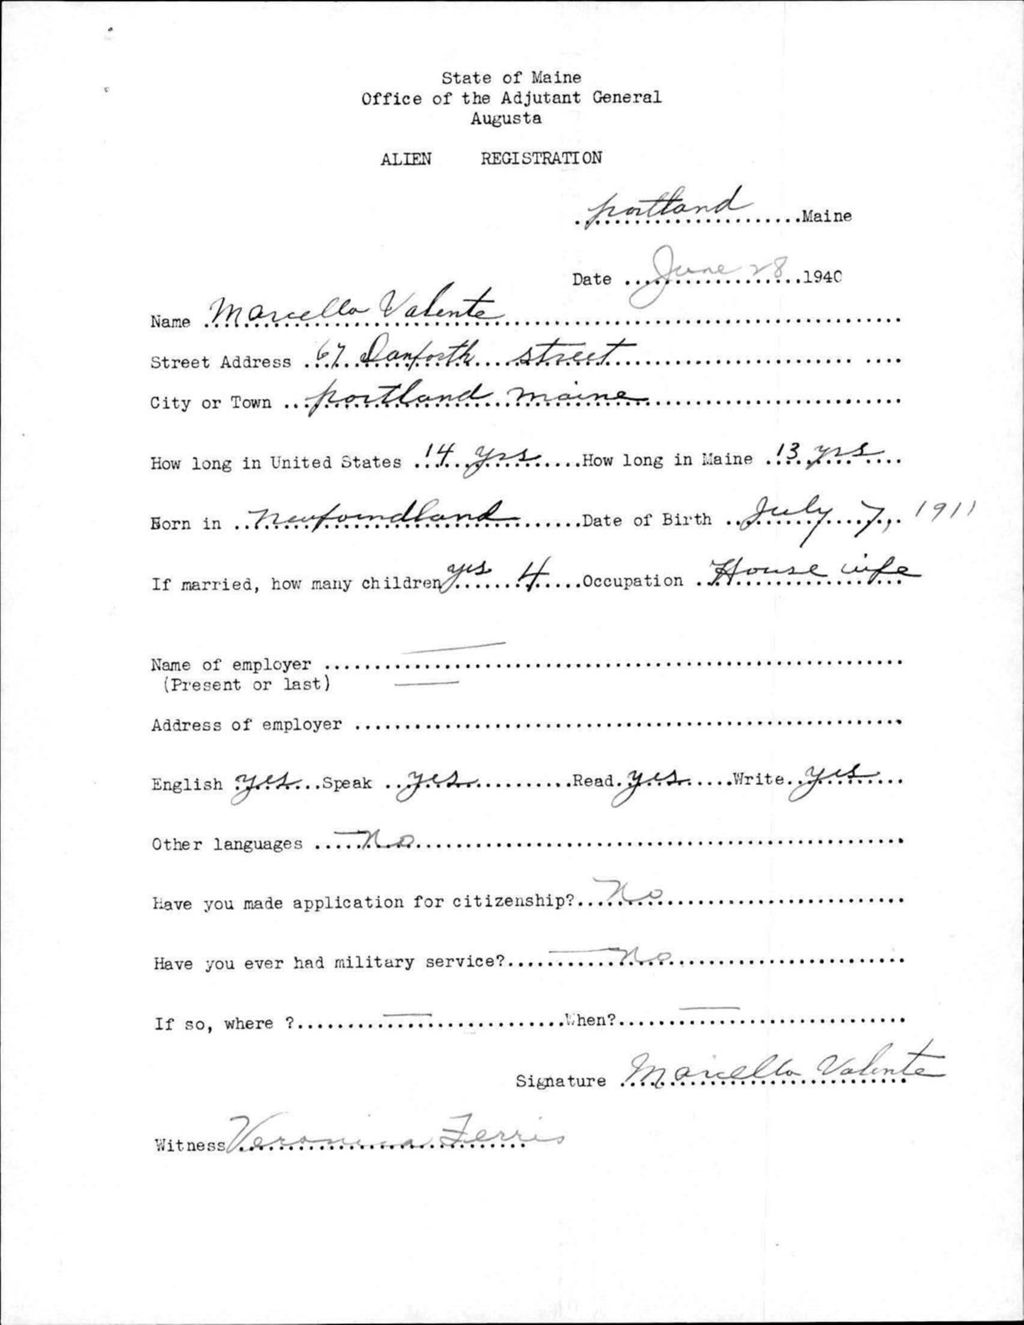 State of Maine
Office of the Adjutant General
Augusta
ALIEN REGISTRATION
portland Maine
Date June 28 1940
Name Marcella Valente
Street Address 67 Danforth street
City or Town portland maine
How long in United States 14 yrs How long in Maine 13 yrs
Born in newfoundland Date of Birth July 7, 1911
If married, how many children yes 4 Occupation House wife
Name of employer
(Present or last)
Address of employer
English yes Speak yes Read yes Write yes
Other languages no
Have you made application for citizenship? No
Have you ever had military service? No
If so, where ? When?
Signature Marcella Valente
Witness Veronica Ferris